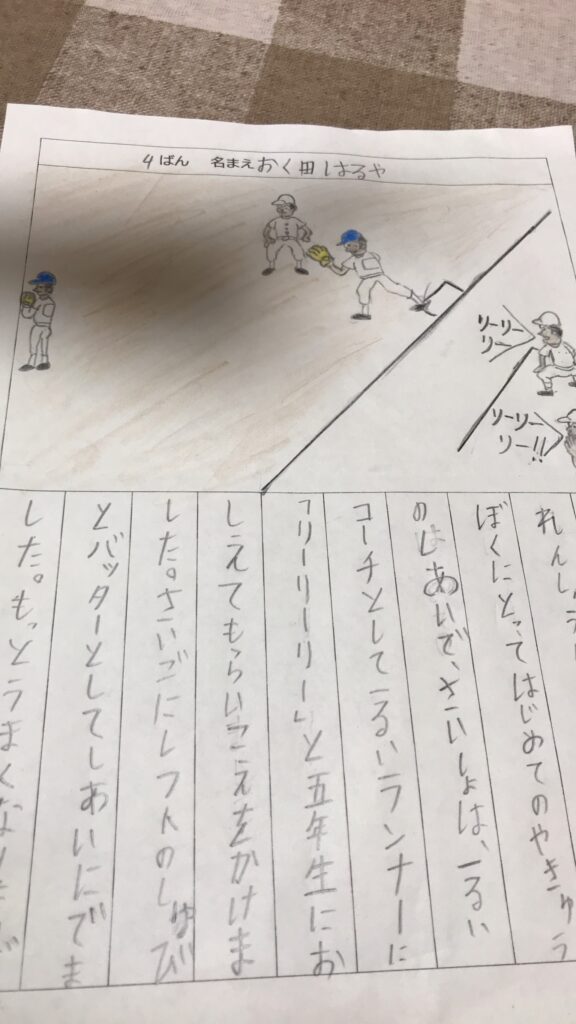 4ばん 名まえおく田はるや
リーリー
リー
リーリー
リー!!
れんしゅう
ぼくにとってはじめてのやきゅう
のしあいで、さいしょは、一るい
コーチとして一るいランナーに
「リーリーリー」と五年生にお
しえてもらいこえをかけま
した。さいごにレフトのしゅび
とバッターとしてしあいにでま
した。もっとうまくなり